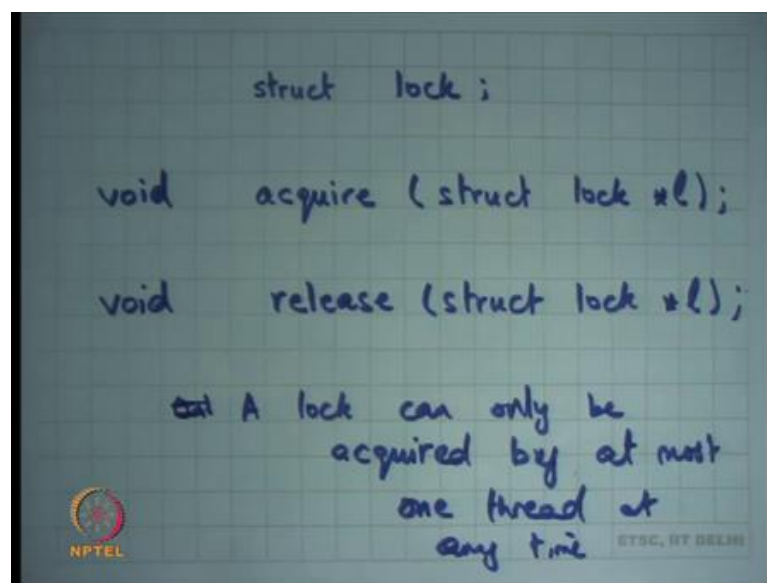 struct lock ;
void acquire ( struct lock *l);
void release (struct lock *l);
A lock can only be
acquired by at most
one thread at
any time
NPTEL
ETSC, IIT DELHI